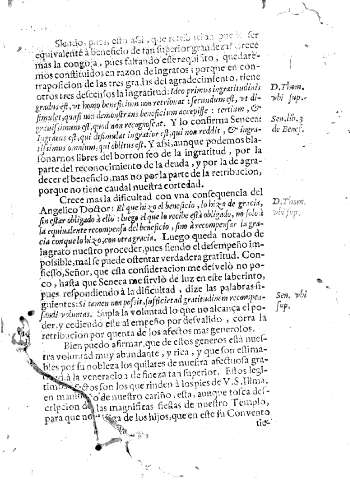 Siendo, pues, esto assi, que retribucion que ser
equivalente à beneficio de tan superior grandeza? Crece
mas la congoja, pues faltando este requisito, quedaremos
constituidos en razon de ingratos; porque en con-
traposicion de las tres gradas del agradecimiento, tiene
otros tres descensos la ingratitud: Ideo primus ingratitudinis
gradus est, ut homo beneficium non retribuat: secundus est, ut dis-
simulet, quasi non demonstrans beneficium accepisse: tertium, &
gravissimum est, quod non recognoscat. Y lo confirma Seneca:
Ingratus est, qui dissimulat ingratus est, qui non reddit, & ingra-
tissimus omnium, qui oblitus est. Y assi, aunque podemos bla-
sonarnos libres del borron feo de la ingratitud, por la
parte del reconocimiento de la deuda, y por la de agra-
decer el beneficio, mas no por la parte de la retribucion,
porque no tiene caudal nuestra cortedad.
Crece mas la dificultad con vna consequencia del
Angelico Doctor: El que hizo el beneficio, lo hizo de gracia,
sin estar obligado à ello: luego el que lo recibe està obligado, no solo à
la equivalente recompensa del beneficio, sino à recompensar la gra-
cia con que lo hizo, con otra gracia. Luego queda notado de
ingrato nuestro proceder, pues siendo el desempeño im-
posible, mal se puede ostentar verdadera gratitud. Con-
fiesso, Señor, que esta consideracion me desvelò no po-
co, hasta que Seneca me sirviò de luz en este laberinto,
pues respondiendo à la dificultad, dize las palabras si-
guientes: si tamen non possit, sufficit ad gratitudinem recompen-
sandi voluntas. Supla la voluntad lo que no alcança el po-
der, y cediendo este al empeño por desvalido, corra la
retribucion por quenta de los afectos mas generosos.
Bien puedo afirmar, que de estos generos està nues-
tra voluntad muy abundante, y rica, y que son estima-
bles por su nobleza los quilates de nuestra afectuosa gra-
titud à la veneracion de fineza tan superior. Estos legi-
timos afectos son los que rinden à los pies de V.S. Illma.
en nombre de nuestro cariño, esta, aunque tosca des-
cripcion de las magnificas fiestas de nuestro Templo,
para que no de los hijos, que en este su Convento
tie-
D. Thom.
vbi sup.
Sen. lib. 3
de Benef.
D. Thom.
vbi sup.
Sen. vbi
sup.